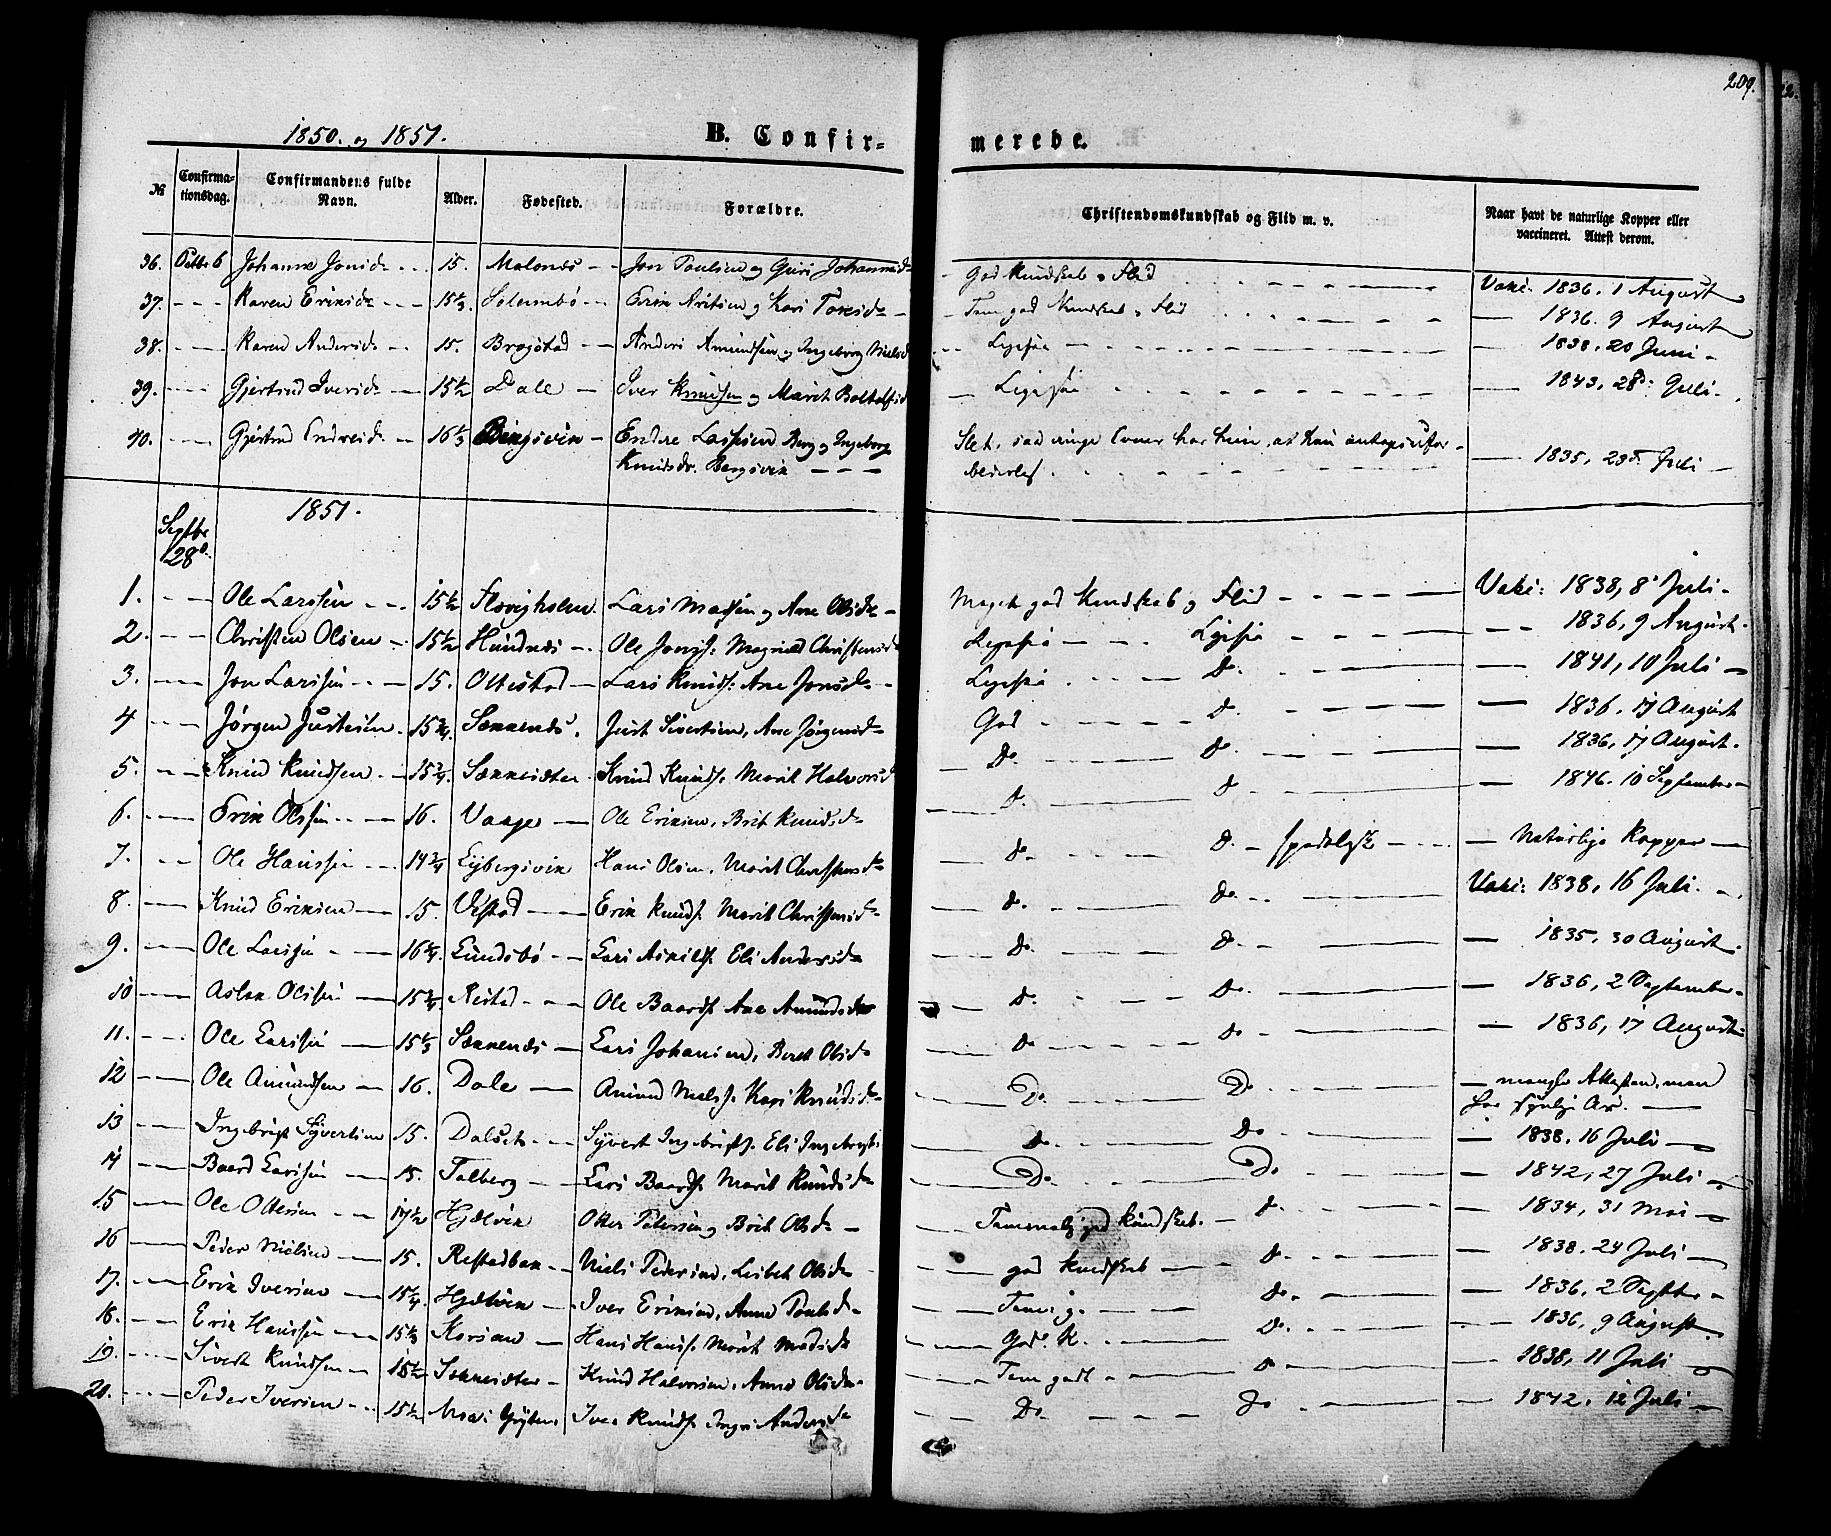 209.
1850. og 1851.
B. Confirmerede.
№ Confirmationsdag. Confirmandens fulde Navn. Alder. Fødested. Forældre. Christendomskundskab og Flid m. v. Naar havt de naturlige Kopper eller vaccineret. Attest derom.
36. Johanne Jonsdr 15. Malones Jon Paulsen og Guri Johannesdr God Kundskab o Flid Vaki: 1836. 1 August
37. Karen Eriksdr 15 1/3. Solemsbø Erik og Kari Tem god Kundskab o Flid 1836. 9 August
38. Karen Andersdr 15. Brogstad Anders Amundsen og Ingeborg Nielsd Ligesaa 1838. 20 Juni
39. Gjertrud Iversdr 15 1/2 Dale Iver Knudsen og Marit Ligesaa 1843, 28de Juli
40. Gjertrud Endresdr 16 1/3 Bergsvik Endre Lassesen Berg og Ingeborg Slet, saa ringe Evner har hun, at hun
Knudsdr. Bergsvik 1835, 23de Juli
1851.
Septbr 28de
1. Ole Larssen 15 1/2 Flovigholm Lars Madsen og Ane Olsdr Meget god Kundskab og Flid Vaki: 1838, 8 Juli
2. Christen Olsen 15 1/2 Hundnes Ole Jonss. Magnild Christensd Ligesaa Ligesaa 1836, 9 August
3. Jon Larssen 15. Ottestad Lars Knuds. Ane Jonsdr Ligesaa Do. 1841, 10 Juli
4 Jørgen Justesen 15 3/4. Sekkenes. Just Sivertsen, Ane Jørgensdr God Do. 1836, 17 August
5. Knud Knudsen 15 3/4. Sekkesæter Knud Knuds. Marit Halvorsd Do. Do. 1836, 17 August.
6. Erik Olssen 16. Vaage Ole Eriksen, Brit Knudsdr Do. Do. 1846. 10 September
7. Ole Hanssen 14 3/4 Eybergsvik Hans Olsen, Marit Christensdr Do. Do. spedalsk Naturlige Kopper
8. Knud Eriksen 15. Vestad Erik Knuds. Marit Christensdr Do. Do. Vaki: 1838, 16 Juli.
9. Ole Larssen 16 1/4. Lundsbø Lars Askilds. Eli Andersdr Do. Do. 1835, 30 August
10 Aslak Olssen 15 3/4 Restad Ole Baards. Ane Amundsdr Do. Do. 1836, 2 September
11. Ole Larssen 15 1/3 Sekkenes Lars Johansen, Beret Olsdr Do. Do. 1836, 17 August
12 Ole Amundsen 16. Dale Amund Nielss. Kari Knudsdr Do. Do. mangler Attesten, men
har synlige Ar.
13 Ingebrigt Syvertsen 15. Dalset Syvert Ingebrigts. Eli Ingebrigts Do. Do. 1838. 16 Juli
14 Baard Larssen 15. Talberg Lars Baards. Marit Knudsdr Do. Do. 1842, 27 Juli
15 Ole Ottersen 17 1/2 Hjelvik Otter Petersen og Brit Olsdr Temmelig god Kundskab. Do. 1834, 31 Mai
16 Peder Nielsen 15. Restadbak Niels Pedersen, Lisbet Olsdr god Kundskab Do. 1838. 24 Juli
17. Erik Iversen 15 1/4. Hjelvik Iver Eriksen, Anne Poulsdr Tem. g. Do. 1836. 2 Septbr
18. Erik Hanssen 15 1/3 Korsan Hans Hanss. Marit Madsdr God. K. Do. 1836, 9 August
19. Sivert Knudsen 15 1/2 Sekkesæter Knud Halvorsen, Anne Olsdr Tem godt Do 1838, 11 Juli
20. Peder Iversen 15 1/2 Iver Knuds. Ingri Andersdr Do. Do 1842, 12 Juli